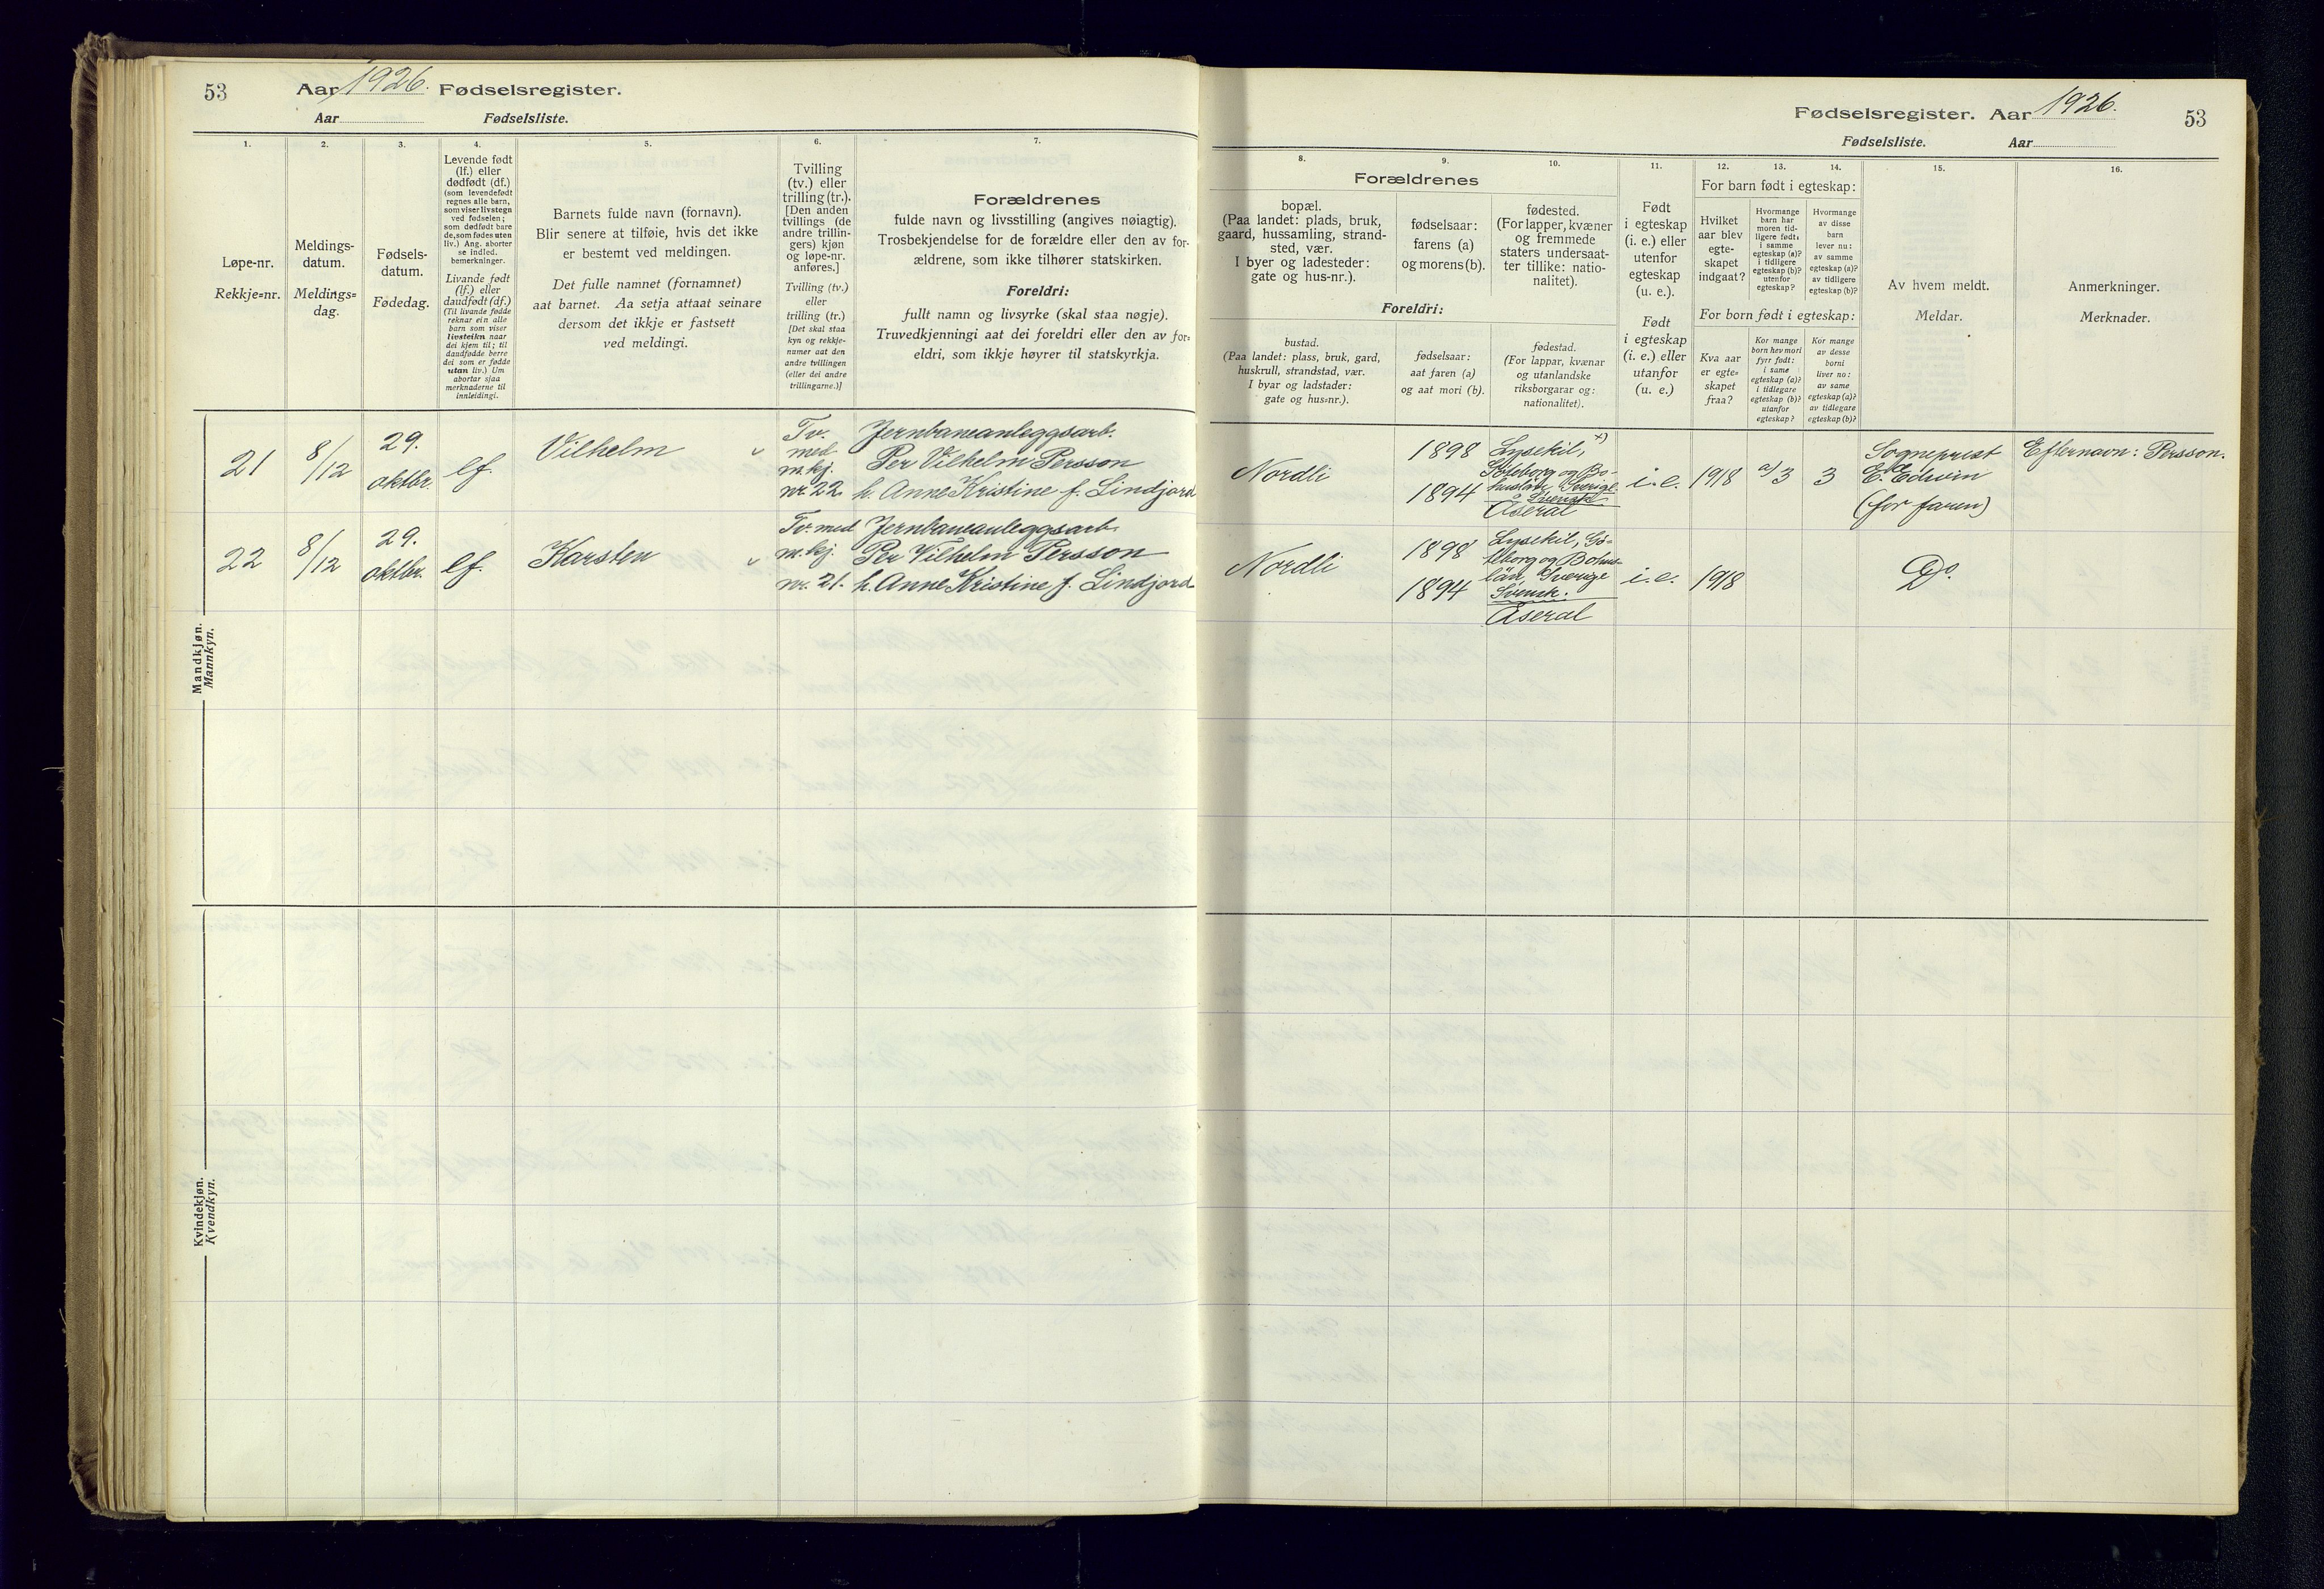 53
Aar 1926. Fødselsregister.
Aar Fødselsliste.
1.
2.
3.
4.
5.
6.
7.
Løpe-nr.
Rekkje=nr.
Meldings-
datum.
Meldings=
dag.
Fødsels-
datum.
Fødedag.
Levende født
(lf.) eller
dødfødt (df.)
(som levendefødt
regnes alle barn,
som viser livstegn
ved fødselen;
som dødfødt bare
de, som fødes uten
liv.) Ang. aborter
se indled.
bemerkninger.
Livande født
(lf.) eller
daudfødt (df.)
(Til livande fødde
reknar ein alle
barn som viser
livsteikn naar
dei kjem til; til
daudfødde berre
dei som er fødde
utan liv.) Um
abortar sjaa
merknaderne til
innleidingi.
Barnets fulde navn (fornavn).
Blir senere at tilføie, hvis det ikke
er bestemt ved meldingen.
Det fulle namnet (fornamnet)
aat barnet. Aa setja attaat seinare
dersom det ikkje er fastsett
ved meldingi.
Tvilling
(tv.) eller
trilling (tr.).
[Den anden
tvillings (de
andre trillin-
gers) kjøn
og løpe-nr.
anføres.]
Tvilling (tv.)
eller
trilling (tr.)
[Det skal staa
kyn og rekkje-
numer aat den
andre tvillingen
(eller dei andre
trillingarne.)]
Forældrenes
fulde navn og livsstilling (angives nøiagtig).
Trosbekjendelse for de forældre eller den av for-
ældrene, som ikke tilhører statskirken.
Foreldri:
fullt namn og livsyrke (skal staa nøgje).
Truvedkjenningi aat dei foreldri eller den av for=
eldri, som ikkje høyrer til statskyrkja.
Mandkjøn.
Mannkyn.
21
8/12
29.
oktbr.
lf.
Vilhelm
Tv.
med
m.kj.
nr. 22.
Jernbaneanleggsarb.
Per Vilhelm Persson
h. Anne Kristine f. Lindjord
22
8/12
29.
oktbr.
lf.
Karsten
Tv. med
m.kj.
nr. 21.
Jernbaneanleggsarb.
Per Vilhelm Persson
h. Anne Kristine f. Lindjord
Kvindekjøn.
Kvendkyn.
Fødselsregister. Aar 1926.
53
Fødselsliste. Aar
8.
9.
10.
11.
12.
13.
14.
15.
16.
Forældrenes
bopæl.
(Paa landet: plads, bruk,
gaard, hussamling, strand-
sted, vær.
I byer og ladesteder:
gate og hus-nr.).
fødselsaar:
farens (a)
og morens (b).
fødested.
(For lapper, kvæner
og fremmede
staters undersaat-
ter tillike: natio-
nalitet).
Foreldri:
bustad.
(Paa landet: plass, bruk, gard,
huskrull, strandstad, vær.
I byar og ladstader:
gate og hus=nr.).
fødselsaar:
aat faren (a)
og aat mori (b).
fødestad.
(For lappar, kvænar
og utanlandske
riksborgarar og:
nationalitet).
Født
i egteskap
(i. e.) eller
utenfor
egteskap
(u. e.).
Født
i egteskap
(i. e.) eller
utanfor
(u. e.)
For barn født i egteskap:
Hvilket
aar blev
egte-
skapet
indgaat?
Hvormange
barn har
moren tid-
ligere født:
i samme
egteskap (a)?
i tidligere
egteskap (b)?
utenfor
egteskap?
Hvormange
av disse
barn
lever nu:
av samme
egteskap (a)?
av tidligere
egteskap (b)?
For born født i egteskap:
Kva aar
er egte=
skapet
fraa?
Kor mange
born hev mori
fyrr født:
i same
egteskap (a)?
i tidlegare
egteskap (b)?
utanfor
egteskap?
Kor mange
av desse
borni
liver no:
av same
egteskap (a)?
av tidlegare
egteskap (b)?
Av hvem meldt.
Meldar.
Anmerkninger.
Merknader.
Nordli
1898
1894
Lysekil, x)
Göteborg og Bo-
huslän, Sverige
Svensk
Åseral
i. e.
1918
a) 3
3
Sogneprest
(for faren)
Efternavn: Persson.
Nordli
1898
1894
Lysekil, Gö-
teborg og Bohus-
län, Sverige
Svensk.
Åseral
i. e.
1918
Do.